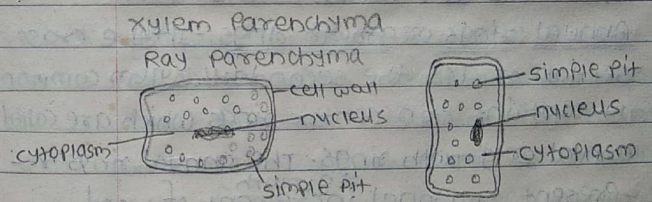 xylem Parenchyma
Ray Parenchyma
cell wall
nucleus
cytoplasm
simple pit
simple pit
nucleus
cytoplasm